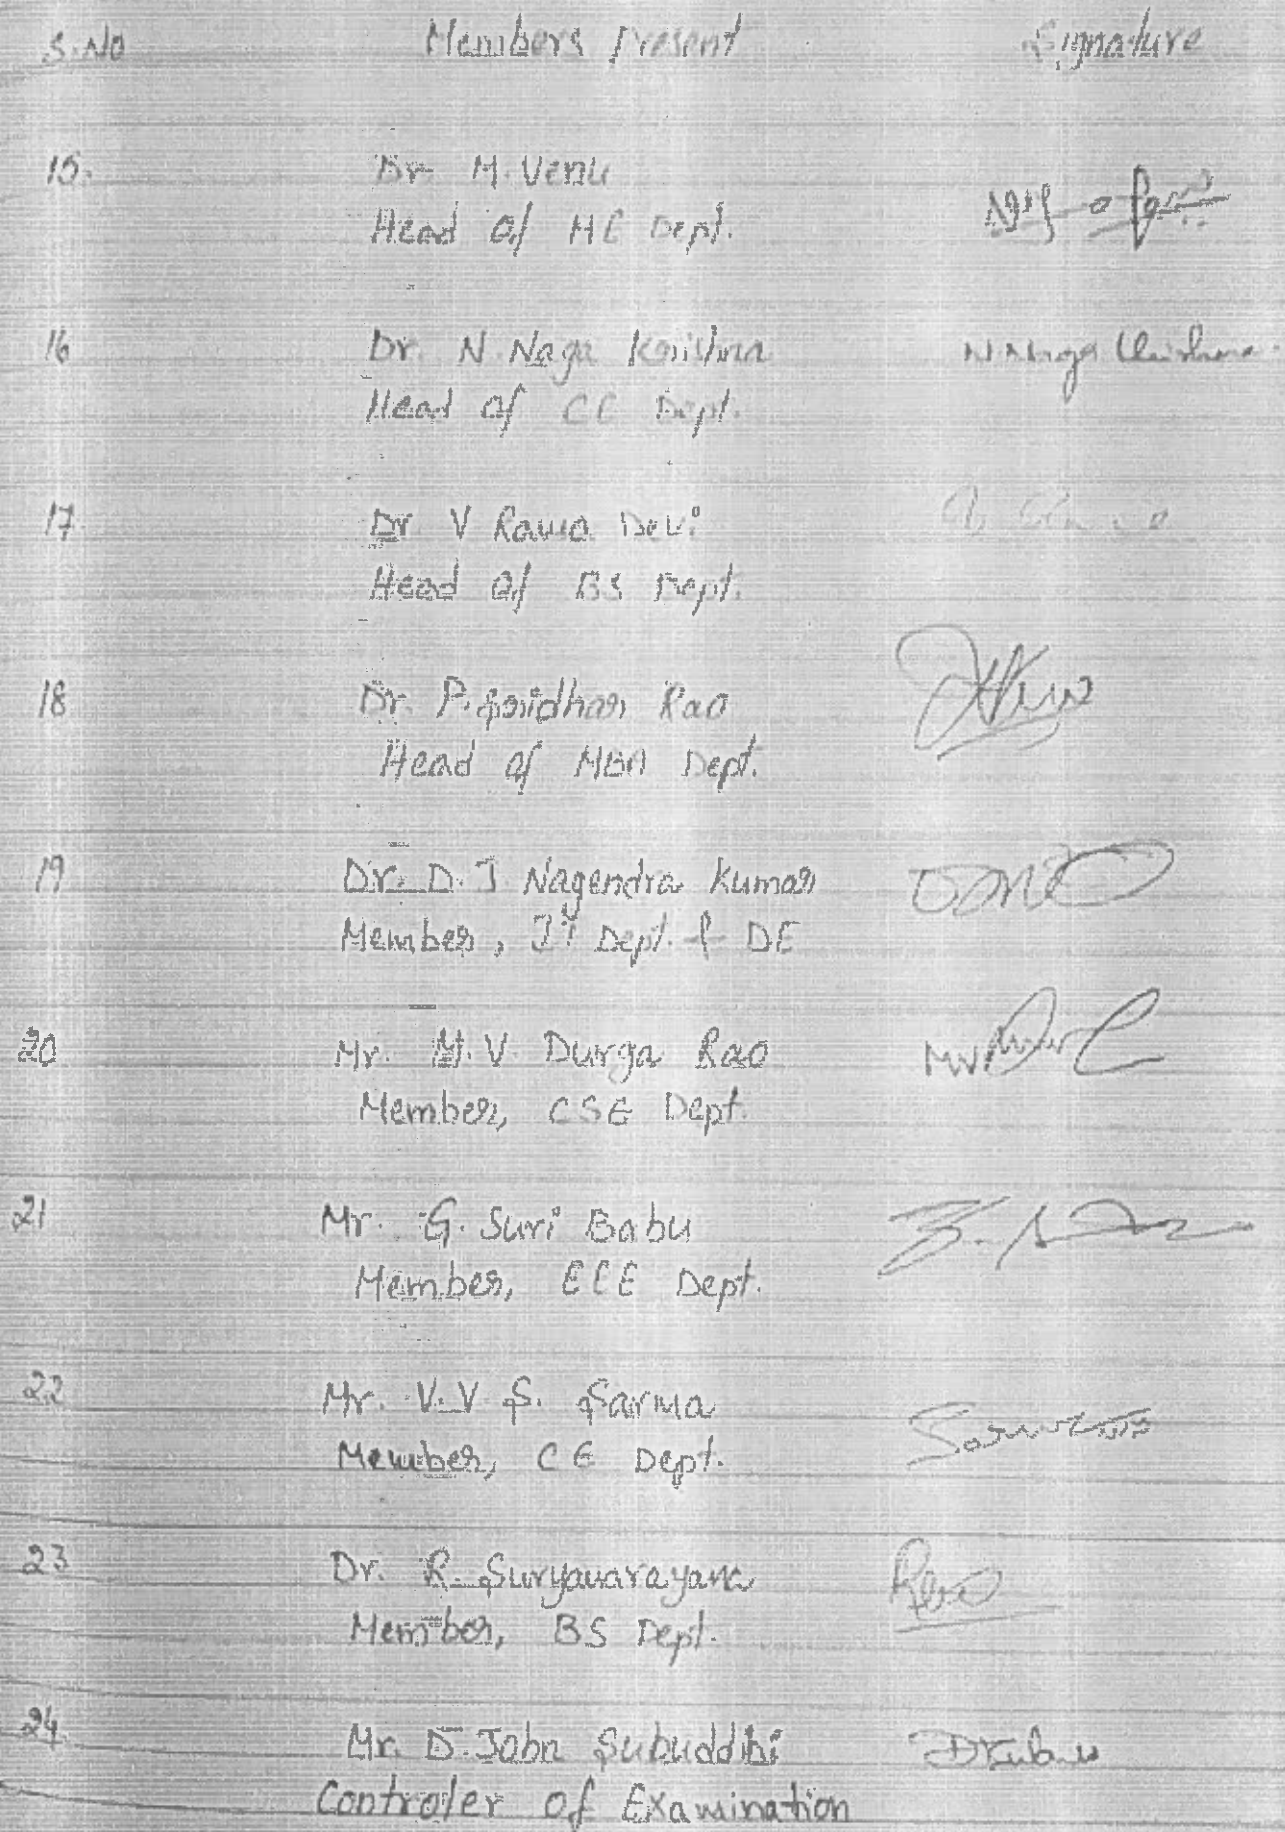 S.No Members Present Signature
15. Dr. M. Venu
Head of ME Dept.
16 Dr. N. Naga Krishna N Naga Krishna
Head of CE Dept.
17. Dr. V Rama Devi
Head of BS Dept.
18 Dr. P. Sridhar Rao
Head of MBA Dept.
19 Dr. D. J. Nagendra Kumar
Member, IT Dept. & DE
20 Mr. M. V. Durga Rao
Member, CSE Dept.
21 Mr. G. Suri Babu
Member, ECE Dept.
22 Mr. V. V. S. Sarma
Member, CE Dept.
23 Dr. R. Suryanarayana
Member, BS Dept.
24. Mr. D. John Subuddhi
Controler of Examination